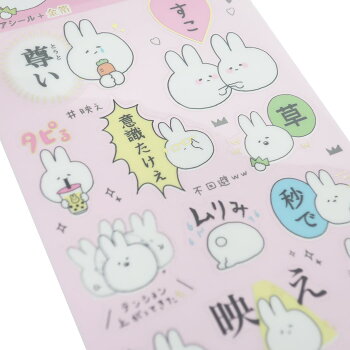 アシール+金箔
とうと
尊い
すこ
#映え
タピる
意識たけぇ
草
不回避ww
秒で
ムリみ
テンション
上がってきた
映え